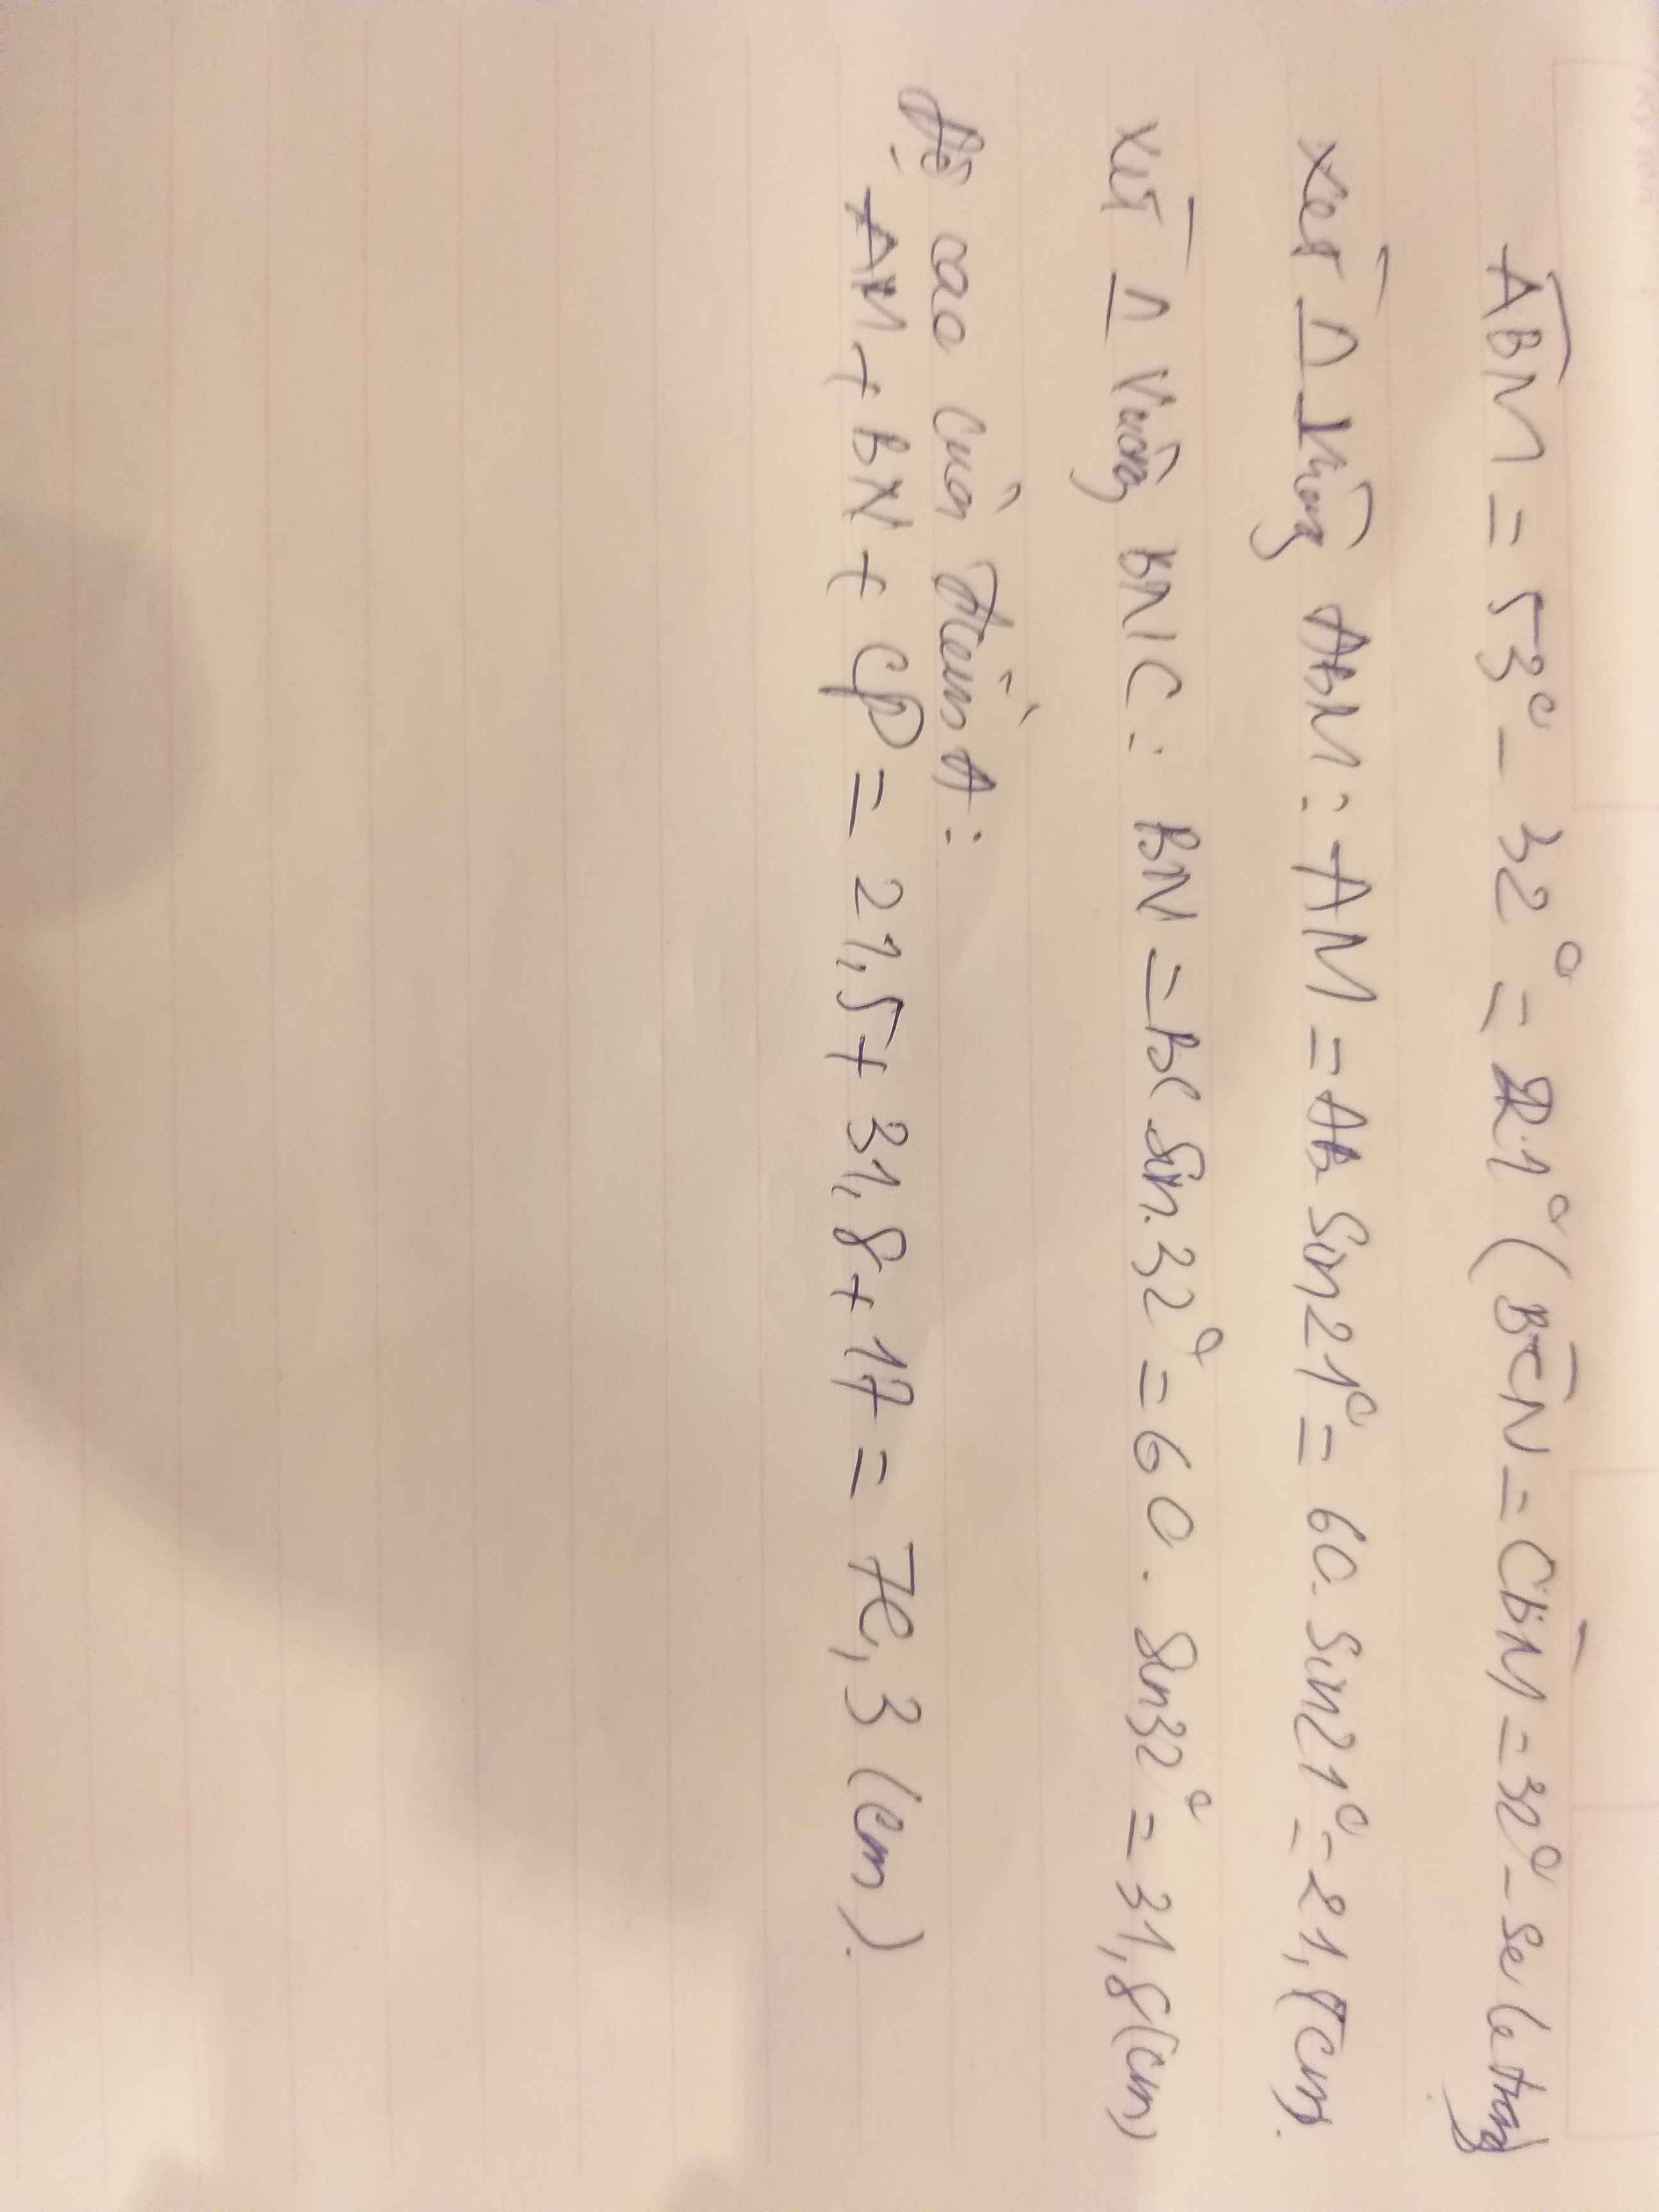 ABM = 53° - 32° = 21° (BCN = CBM = 32° - so le trong)
Xét Δ vuông ABM: AM = AB Sin 21° = 60. Sin 21° = 21,5 (cm).
Xét Δ vuông BNC: BN = BC Sin. 32° = 60. Sin 32° = 31,8 (cm)
độ cao của điểm A:
AM + BN + CP = 21,5 + 31,8 + 17 = 70,3 (cm).